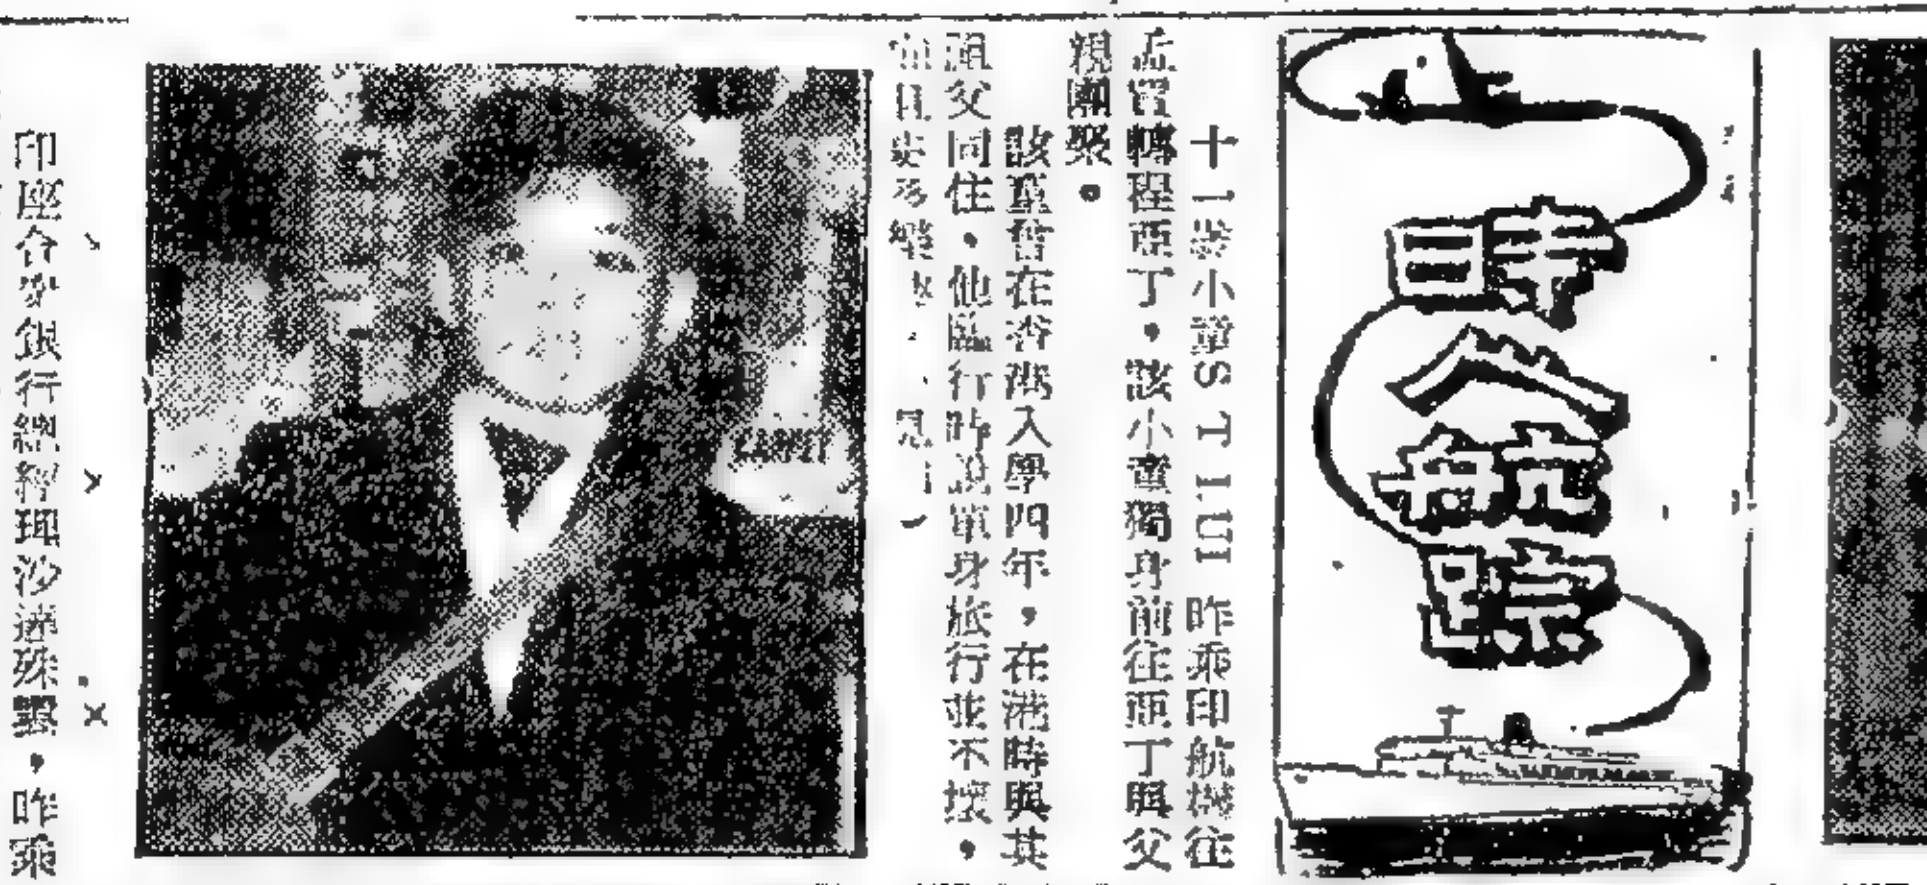 時人航踪
十一歲小童S T LUI 昨乘印航機往
孟買轉程亞丁，該小童獨身前往亞丁與父
親團聚。
該童曾在香港入學四年，在港時與其
祖父同住，他臨行時說單身旅行並不壞，
CARPET
印座合眾銀行總經理沙達殊爾，昨乘